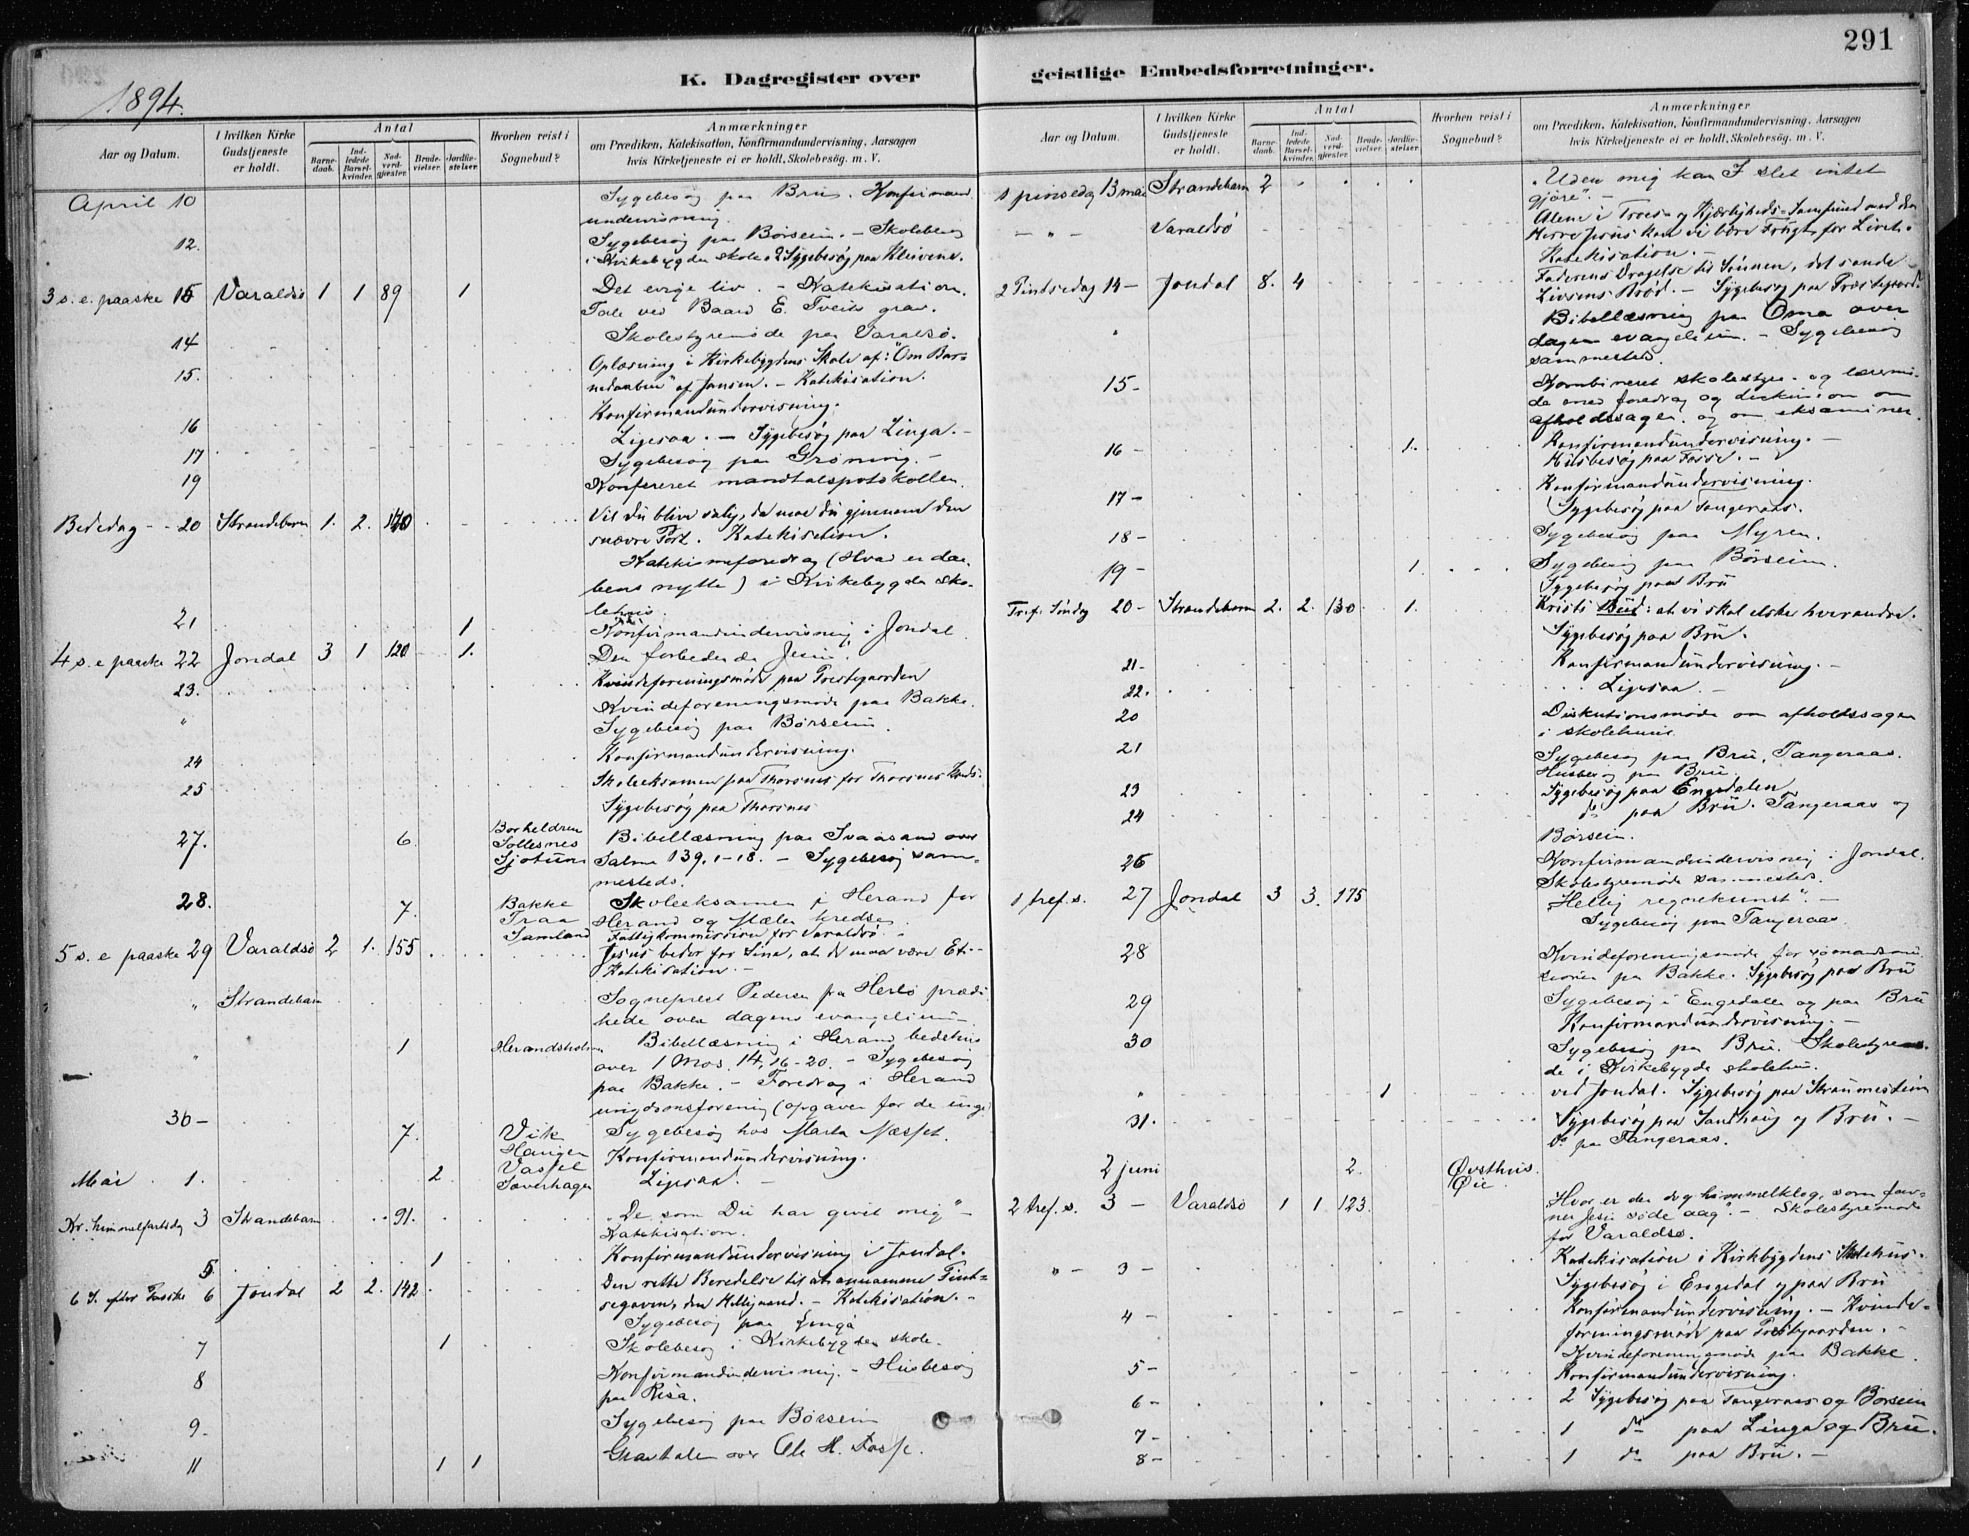 291
K. Dagregister over geistlige Embedsforretninger.
1894.
Aar og Datum.
I hvilken Kirke Gudstjeneste er holdt.
Antal
Barnedaab.
Indledede Barselkvinder.
Nadverdgjæster.
Brudevielser.
Jordfæstelser.
Hvorhen reist i Sognebud?
Anmærkninger
om Prædiken, Katekisation, Konfirmandundervisning, Aarsagen
hvis Kirketjeneste ei er holdt, Skolebesög. m. V.
April 10 Sygebesøg paa Bru. Konfirmand
undervisning.
12. Sygebesøg paa Børsein. - Skolebesøg
i Kirkebygdens skole. 2 Sygebesøg paa Kleivene.
3 s. e. paaske 15 Varaldsø 1 1 89 1 Det evige liv. - Katekisation.
Tale ved Baard E. Tveits grav.
14 Skolestyremøde paa Varaldsø.
15. Oplæsning i Kirkebygdens Skole af: "Om Bar-
nedaaben" af Jensen. - Katekisation.
Konfirmandundervisning.
16 Ligesaa. - Sygebesøg paa Linga. -
17 Sygebesøg paa Grøning. -
19 Konfereret mandtalsprotokollen.
Bededag - - 20 Strandebarm 1. 2. Vil du blive salig, da maa du gjennem den
snævre Port. Katekisation.
Katekismeforedrag (Hvad er daa-
bens nytte) i Kirkebygdens sko-
lehus.
21 1 Konfirmandundervisning i Jondal
4 s. e paaske 22 Jondal 3 1 120 1. Den forbedende Jesus.
23. Kvindeforeningsmøde paa Prestegaarden
" Kvindeforeningsmøde paa Bakke.
Sygebesøg paa Børsein
24 Konfirmandundervisning.
25 Skoleeksamen paa Thorsnes for Thorsnes Kreds.
Sygebesøg paa Thorsnes
27. 6. Borheldren Sollesnes Sjotun Bibellæsning paa Svaasand over
Salme 139, 1-18. - Sygebesøg sam-
mesteds.
28. 7. Bakke Traa Samland Skoleeksamen i Herand for
Herand og Mælen kredse
Fattigkommission for Varaldsø.
5 s. e paaske 29 Varaldsø 2 1. 155 Jesus beder for sine, at de maa være Et. -
Katekisation. -
" Strandebarm Sogneprest Pedersen fra Herlø prædi
kede over dagens evangelium
" 1 Herandsholmen Bibellæsning i Herand bedehus
over 1 Mos. 14, 16-20. - Sygebesøg
paa Bakke. - Foredrag i Herand
ungdomsforening (opgaver for de unge)
30 - 7. Vik Haugen Sygebesøg hos Marta Næsset.
Konfirmandundervisning.
Mai 1. 2 Vassel Saverhagen Ligesaa. -
Kr. himmelfartsdag 3 Strandebarm 91. "De som Du har givet mig" -
Katekisation.
5 1 Konfirmandundervisning i Jondal.
6 S. efter Paaske 6 Jondal 2 2. 142 Den rette Beredelse til at annamme Pint-
segaven, den Helligaand. - Katekisation. -
Sygebesøg paa Linga
7 1 Skolebesøg i Kirkebygden skole.
8 Konfirmandundervisning. - Husbesøg
paa Risa.
9. Sygebesøg paa Børsein
11 1 1 Gravtale over Ole M. Fosse.
Aar og Datum.
I hvilken Kirke Gudstjeneste er holdt.
Antal
Barnedaab.
Indledede Barselkvinder.
Nadverdgjæster.
Brudevielser.
Jordfæstelser.
Hvorhen reist i Sognebud?
Anmærkninger
om Prædiken, Katekisation, Konfirmandundervisning, Aarsagen
hvis Kirketjeneste ei er holdt, Skolebesög. m. V.
1 pinsedag 13 mai Strandebarm 2 "Uden mig kan I slet intet
gjøre". -
- " - Varaldsø Alene i Troes- og Kjærligheds-Samfund med den
Herre Jesus kan vi bære Frugt for Livet. -
Katekisation. -
2 Pintsedag 14 - Jondal 8. 4 Faderens Dragelse til Sønnen, det sande
Livsens Brød. - Sygebesøg paa Prestegaard.
" Bibellæsning paa Oma over
dagens evangelium. - Sygebesøg
sammesteds.
15 - Kombineret skolestyre- og lærermø-
de med foredrag og diskussion om
afholdssagen og om eksaminer
16 - 1. Konfirmandundervisning. -
Husbesøg paa Fosse. -
17 - Konfirmandundervisning.
Sygebesøg paa Tangeraas.
18 - Sygebesøg paa Myren.
19 - 1. Sygebesøg paa Børsein.
Sygebesøg paa Bru
Tref. Søndag 20 - Strandebarm 2. 2. 130 1. Kristi Bud: at vi skal elske hverandre.
Sygebesøg paa Bru.
21 - Konfirmandundervisning. -
22. Ligesaa. -
20 Diskutionsmøde om afholdssagen
i skolehuset.
21 Sygebesøg paa Bru, Tangeraas.
Husbesøg paa Bru.
23 Sygebesøg paa Engedalen
24 do paa Bru. Tangeraas og
Børsein.
26 Konfirmandundervisning i Jondal.
Skolestyremøde sammesteds.
1 tref. s. 27 Jondal 3 3. 175 "Hellig regnekunst". -
Sygebesøg paa Tangeraas
28 Kvindeforeningsmøde for sømandsmis
sionen paa Bakke. Sygebesøg paa Bru
29 Sygebesøg i Engedalen og paa Bru
Konfirmandundervisning. -
30 Sygebesøg paa Bru. Skolestyremø-
de i Kirkebygde skolehus.
" 1 ved Jondal. Sygebesøg paa Straumestein
31. Sygebesøg paa Sandhaug og Bru. -
do paa Tangeraas.
2 juni 2. Øvsthus. Øie.
2 tref. s. 3 - Varaldsø 1 1 123 Hvor er den dog himmelklog, som fav-
ner Jesu søde aag". - Skolestyremøde
for Varaldsø.
" - 3 - Katekisation i Kirkbygdens Skolehus.
Sygebesøg i Engedal og paa Bru
4 - Konfirmandundervisning. - Kvinde-
foreningsmøde paa Prestgaarden. -
Kvindeforeningsmøde paa Bakke.
5 - Konfirmandundervisning.
6 - 2 Sygebesøg paa Tangeraas og Børsein
7 - 1 do paa Linga og Bru.
8 - 1 do paa Bru. -